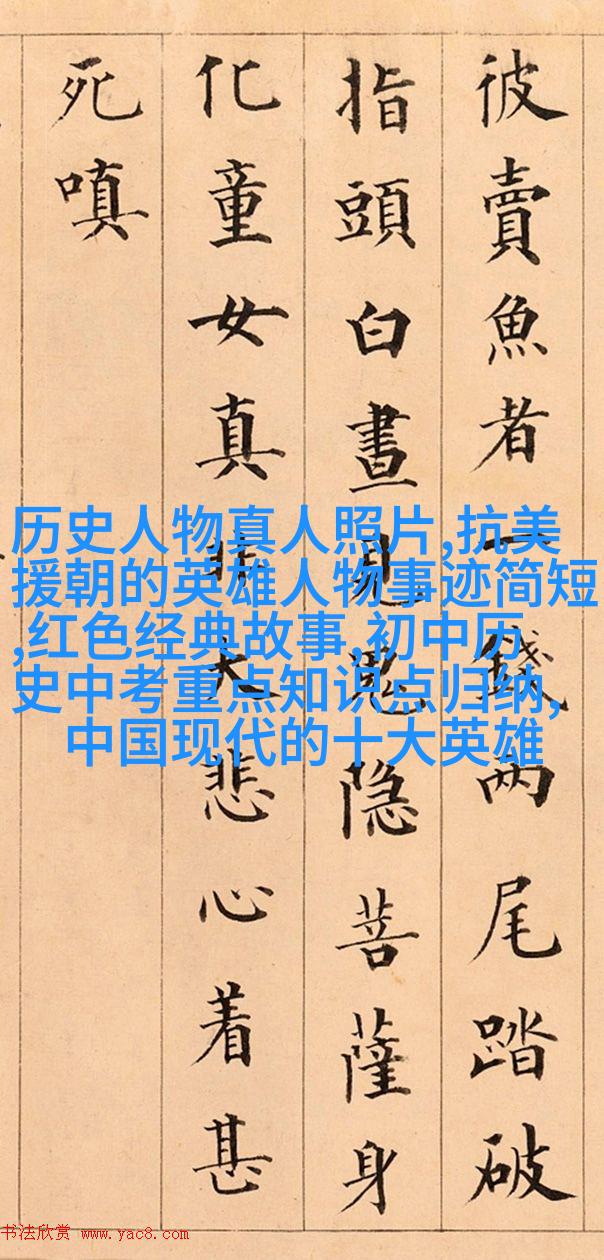 彼賣魚者一錢兩尾踏破
指頭白晝見鬼隐菩薩身
化童女真大悲心着甚
死嗔
历史人物真人照片,抗美
援朝的英雄人物事迹简短
,红色经典故事,初中历
史中考重点知识点归纳,
中国现代的十大英雄
书法欣赏 www.yac8.com